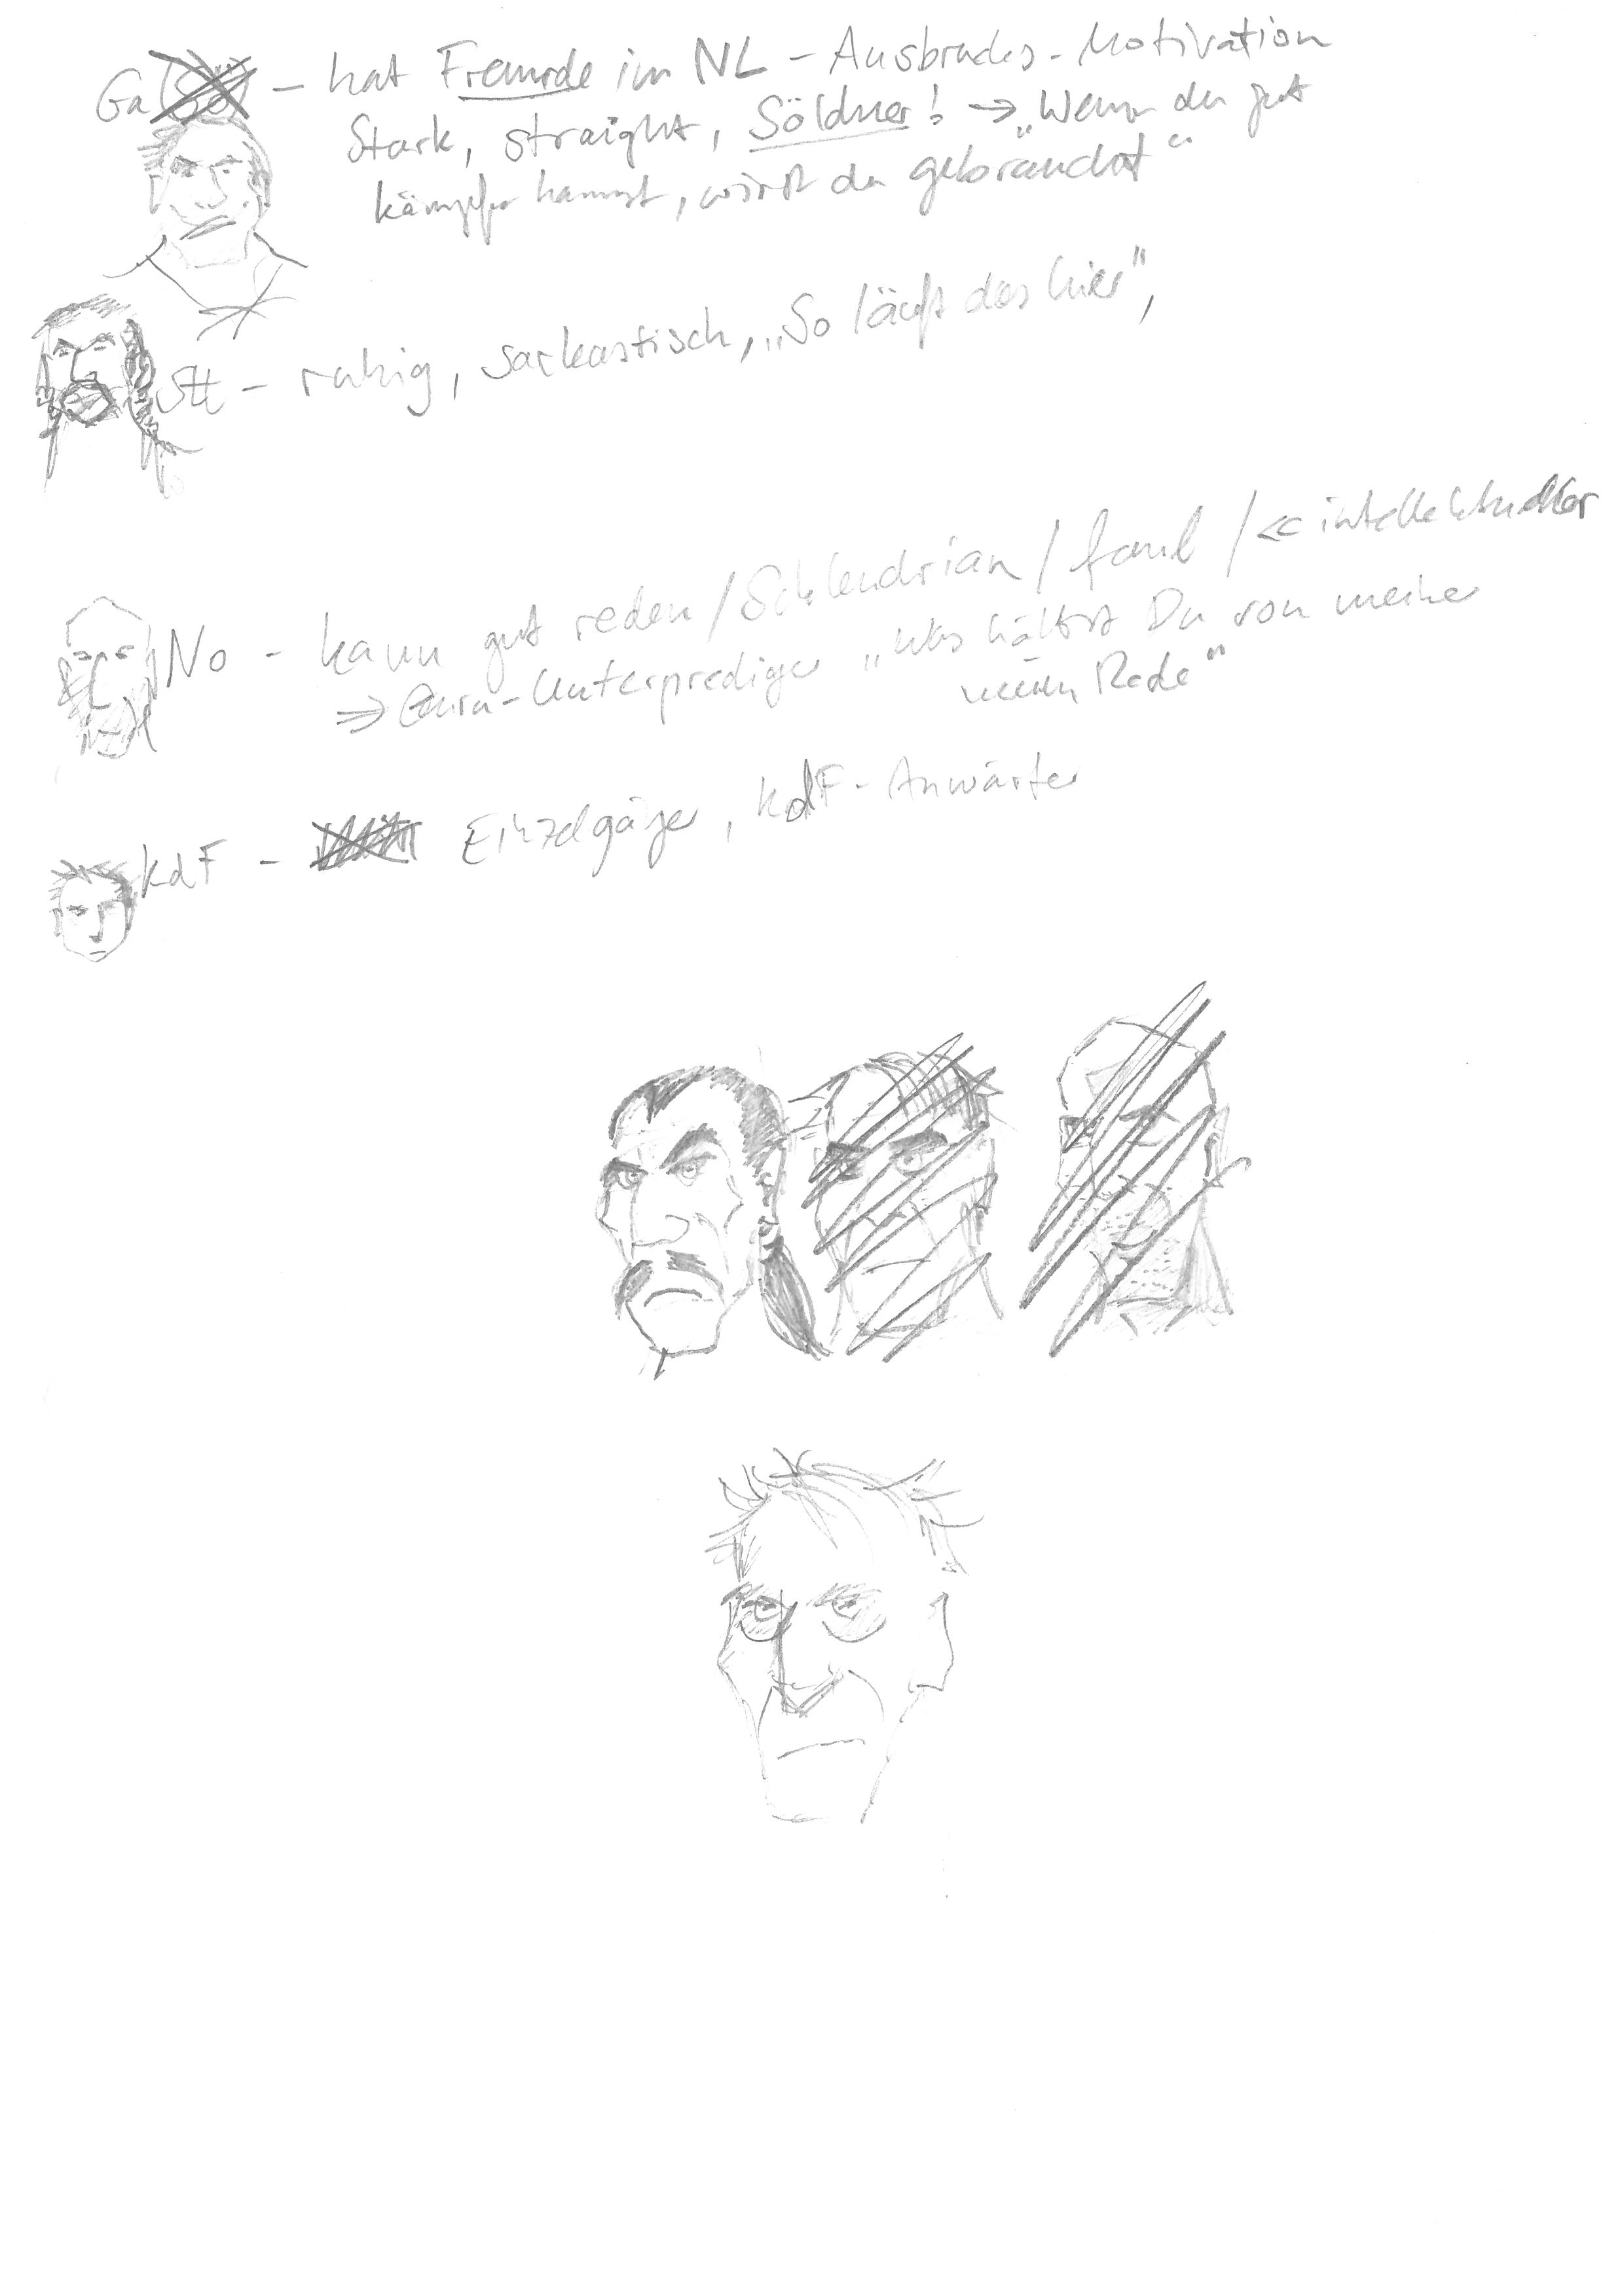 Ga (Sö) - hat Freunde im NL - Ausbruchs-Motivation
Stark, straight, Söldner! → „Wenn du gut
kämpfen kannst, wirst du gebraucht“
Stt - ruhig, sarkastisch, „So läuft das hier“,
No - kann gut reden / Schlendrian / faul / << intellektueller
⇒ Guru-Unterprediger „Was hältst Du von meiner
neuen Rede“
KdF - Einzelgänger, KdF-Anwärter